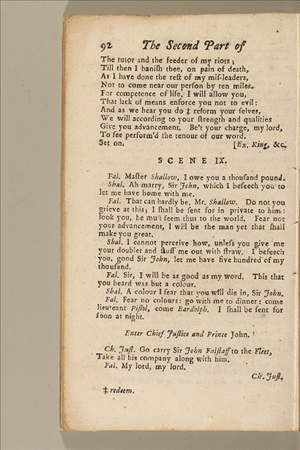 92 The Second Part of
The tutor and the feeder of my riots;
Till then I baniſh thee, on pain of death,
As I have done the reſt of my miſ-leaders,
Not to come near our perſon by ten miles.
For competence of life, I will allow you,
That lack of means enforce you not to evil:
And as we hear you do ‡ reform your ſelves,
We will according to your ſtrength and qualities
Give you advancement. Be't your charge, my lord,
To ſee perform'd the tenour of our word.
Set on. [Ex. King, &c.
SCENE IX.
Fal. Maſter Shallow, I owe you a thouſand pound.
Shal. Ah marry, Sir John, which I beſeech you to
let me have home with me.
Fal. That can hardly be, Mr. Shallow. Do not you
grieve at this; I ſhall be ſent for in private to him:
look you, he muſt ſeem thus to the world. Fear not
your advancement, I will be the man yet that ſhall
make you great.
Shal. I cannot perceive how, unleſs you give me
your doublet and ſtuff me out with ſtraw. I beſeech
you, good Sir John, let me have five hundred of my
thouſand.
Fal. Sir, I will be as good as my word. This that
you heard was but a colour.
Shal. A colour I fear that you will die in, Sir John.
Fal. Fear no colours: go with me to dinner: come
lieutenant Piſtol, come Bardolph. I ſhall be ſent for
ſoon at night.
Enter Chief Juſtice and Prince John.
Ch. Juſt. Go carry Sir John Falſtaff to the Fleet,
Take all his company along with him.
Fal. My lord, my lord.
Ch. Juſt.
‡ redeem.